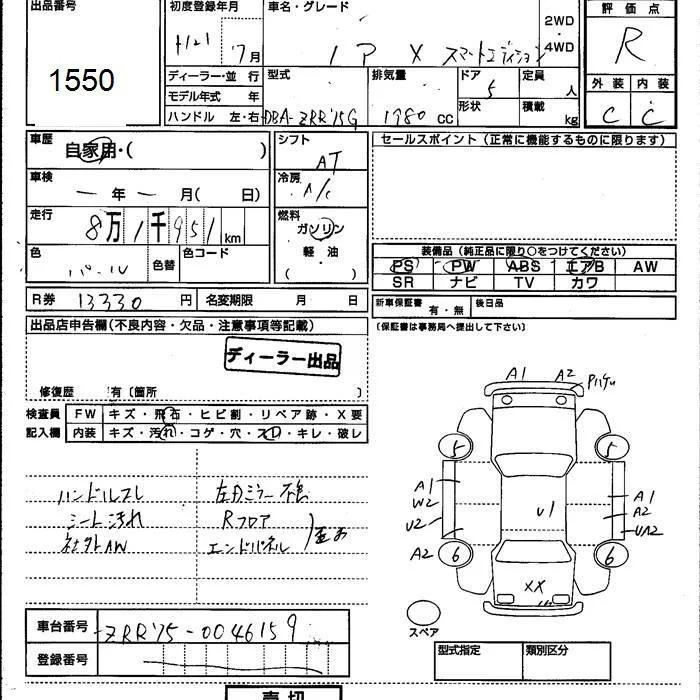 出品番号 初度登録年月 車名・グレード 2WD 評価点
1550 H21 7月 IP X スマートエディション 4WD R
ディーラー・並行 型式 排気量 ドア 定員 外装 内装
モデル年式 年 5 人
形状 積載
ハンドル 左・右 DBA-ZRR75G 1980 cc kg C C
車歴 自家用・( ) シフト AT セールスポイント(正常に機能するものに限ります)
車検 年 月( 日) 冷房 A/C
走行 8万1千951km 燃料 ガソリン
色 パール 色替 色コード 軽油
( ) 装備品(純正品に限り○をつけてください)
PS PW ABS エアB AW
SR ナビ TV カワ
R券 13330 円 名変期限 月 日 新車保証書 有・無 後日品
出品店申告欄(不良内容・欠品・注意事項等記載) (保証書は事務局へ提出して下さい)
ディーラー出品
修復歴 有〔箇所 〕
検査員 FW キズ・飛石・ヒビ割・リペア跡・X要
記入欄 内装 キズ・汚れ・コゲ・穴・スレ・キレ・破レ
A1 A2
5 5
ハンドルスレ 左カミラー
シート汚れ Rフロア
社外AW エンドパネル
A1 W2 U2 U1 A1 A2 UA2
A2 6 6
XX
スペア
車台番号 ZRR75-0046159
登録番号
型式指定 類別区分
売切